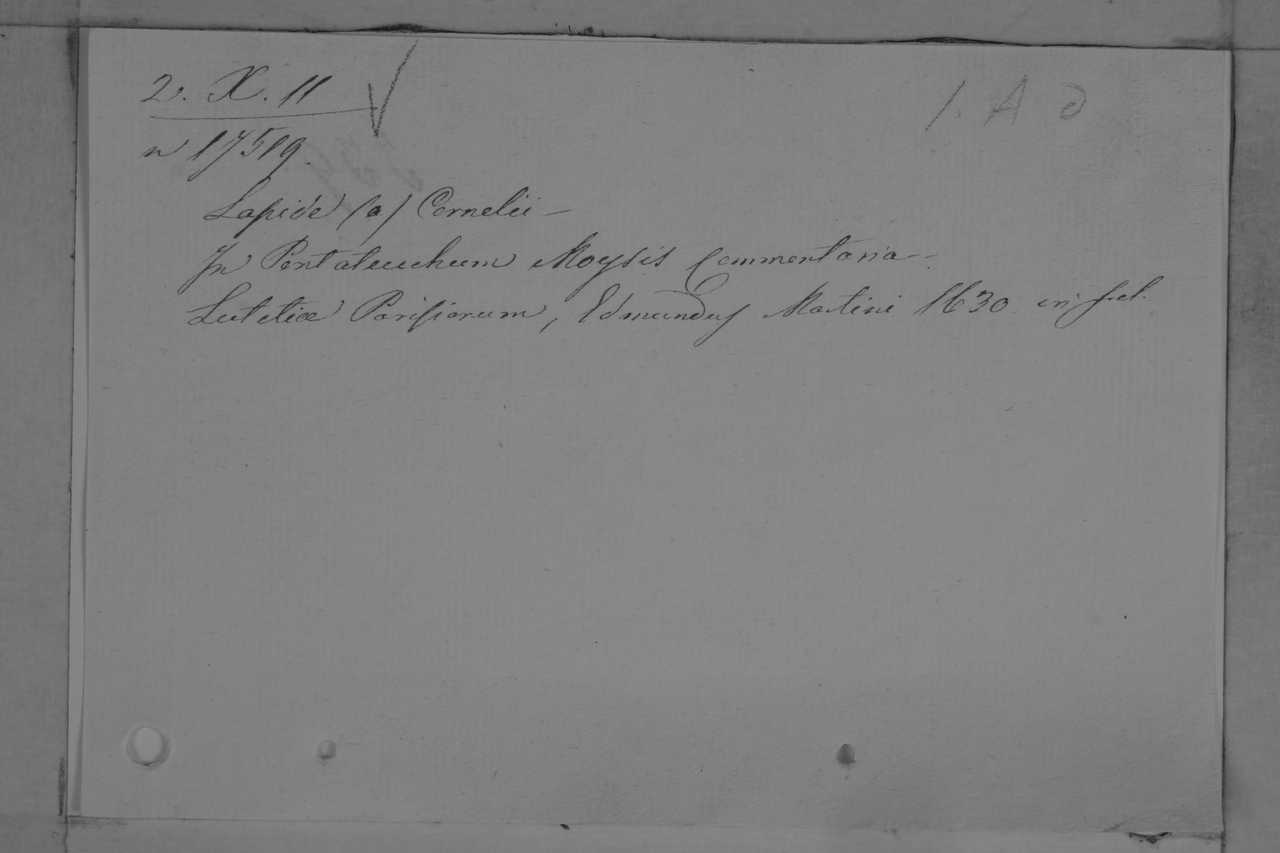 2. X. 11
1. A
n 17519.
Lapide (a) Cornelii –
In Pentateuchum Moysis Commentaria –
Lutetiæ Parisiorum, Edmundus Martini 1630 in fol.